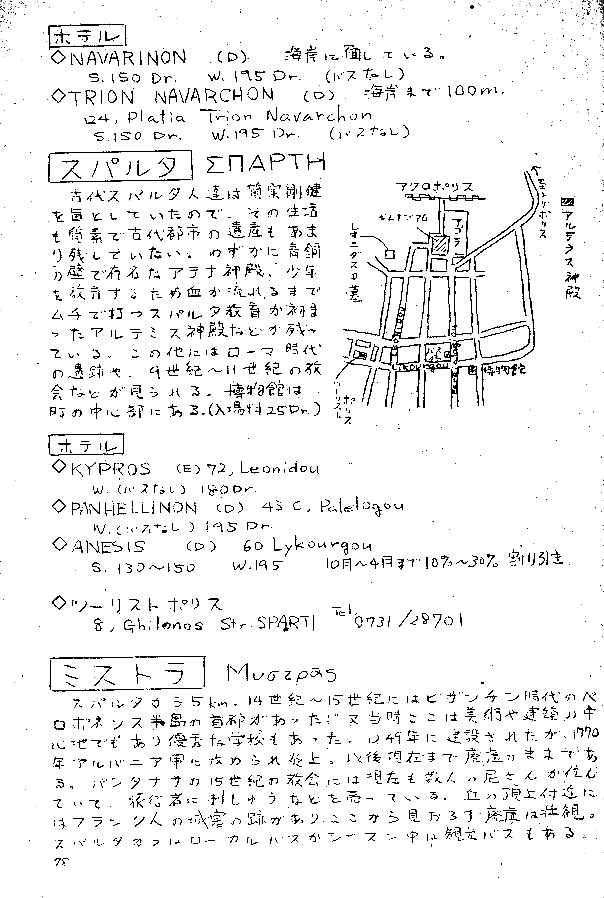 ホテル
◇NAVARINON (D) 海岸に面している。
S.150 Dr. W.195 Dr. (バスなし)
◇TRION NAVARCHON (D) 海岸まで100m.
24, Platia Trion Navarchon
S.150 Dr. W.195 Dr. (バスなし)
スパルタ ΣΠΑΡΤΗ
古代スパルタ人達は簡実剛健
を旨としていたので、その生活
も質素で古代都市の遺産もあま
り残していない。わずかに青銅
の壁で有名なアテナ神殿、少年
を教育するため血が流れるまで
ムチで打つスパルタ教育が始ま
ったアルテミス神殿などが残っ
ている。この他にはローマ時代
の遺跡や、9世紀〜11世紀の教
会などが見られる。博物館は
町の中心部にある。(入場料25Dr.)
アクロポリス
アゴラ
レオニダスの墓
トリポリス
アルテミス神殿
博物館
ツーリストポリス
ホテル
◇KYPROS (E) 72, Leonidou
W.(バスなし) 180Dr.
◇PANHELLINON (D) 43 C, Paleologou
W.(バスなし) 195 Dr.
◇ANESIS (D) 60 Lykourgou
S. 130〜150 W.195 10月〜4月まで10%〜30% 割り引き
◇ツーリストポリス
8, Ghilonos Str. SPARTI Tel 0731/28701
ミストラ Μυστρας
スパルタから5km. 14世紀〜15世紀にはビザンチン時代のペ
ロポネソス半島の首都があった。又当時ここは美術や建築の中
心地でもあり優秀な学校もあった。1249年に建設されたが、1770
年アルバニア軍に攻められ炎上。以後現在まで廃虚のままであ
る。パンタナサの15世紀の教会には現在も数人の尼さんが住ん
でいて、旅行者に刺しゅうなどを売っている。丘の頂上付近に
はフランク人の城塞の跡があり、ここから見おろす廃虚は壮観。
スパルタからはローカルバスがシーズン中は観光バスもある。